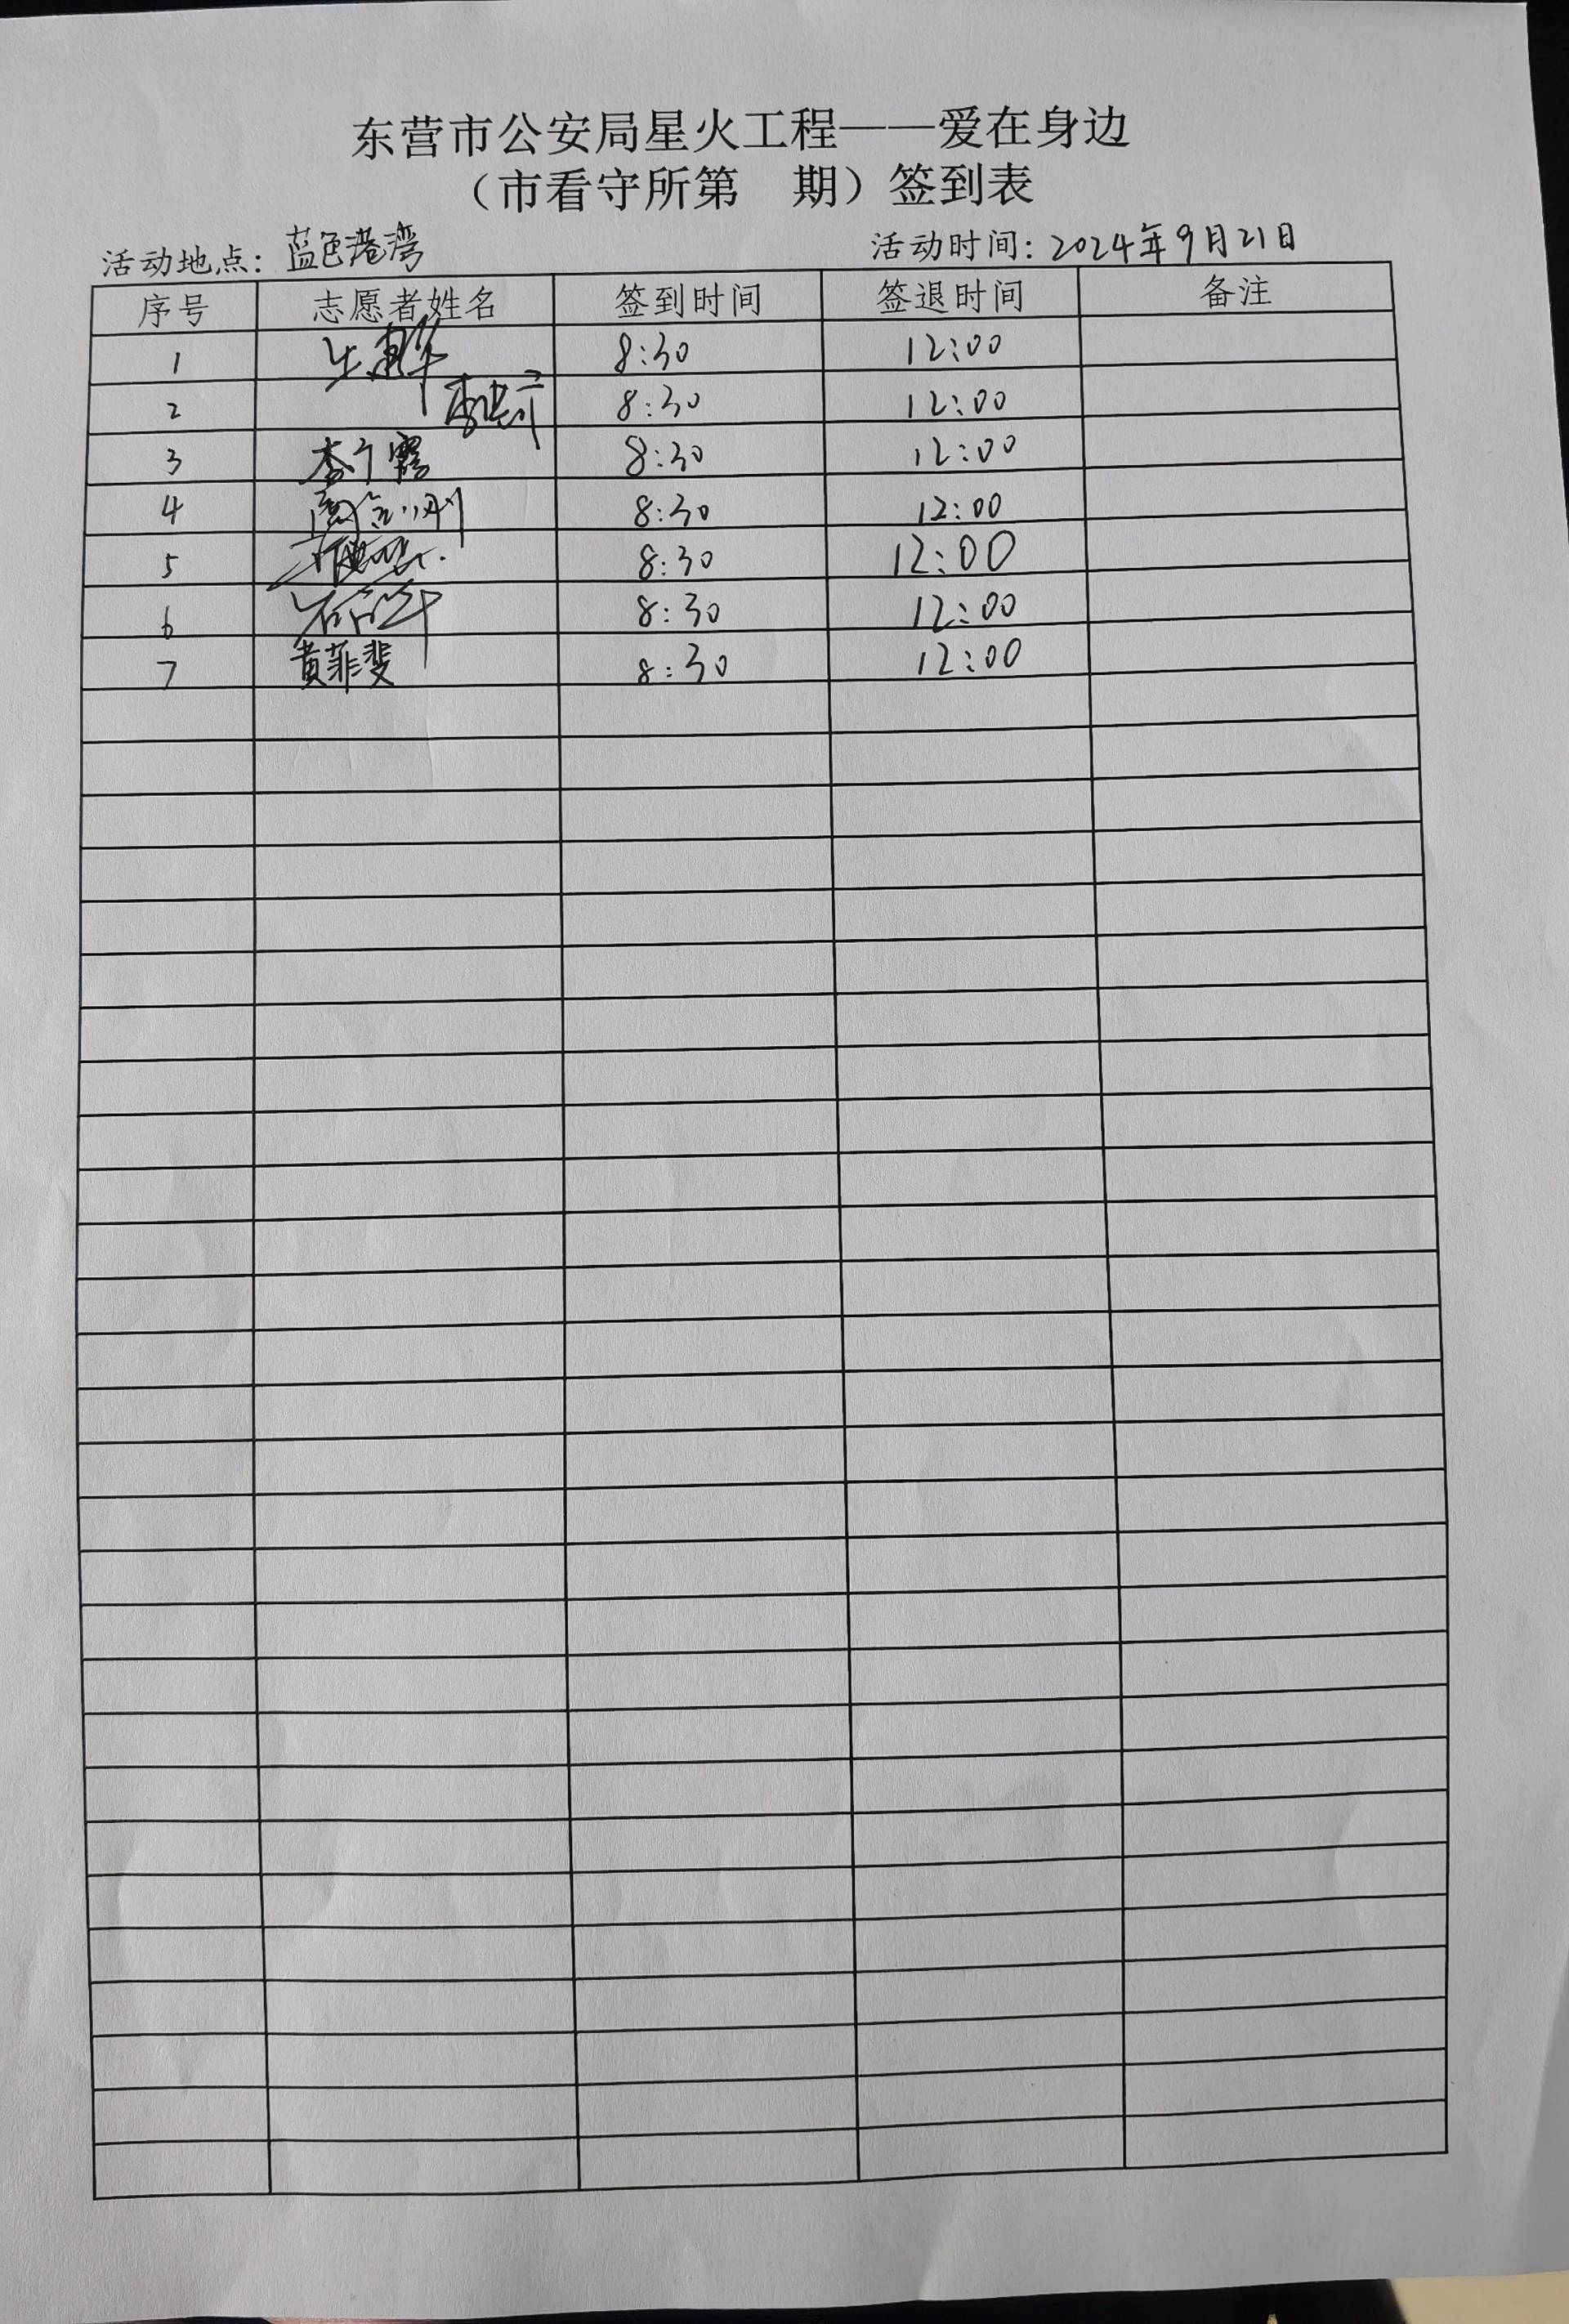 东营市公安局星火工程——爱在身边
（市看守所第 期）签到表
活动地点：蓝色港湾 活动时间：2024年9月21日
序号 志愿者姓名 签到时间 签退时间 备注
1 8:30 12:00
2 8:30 12:00
3 8:30 12:00
4 8:30 12:00
5 8:30 12:00
6 8:30 12:00
7 黄菲斐 8:30 12:00